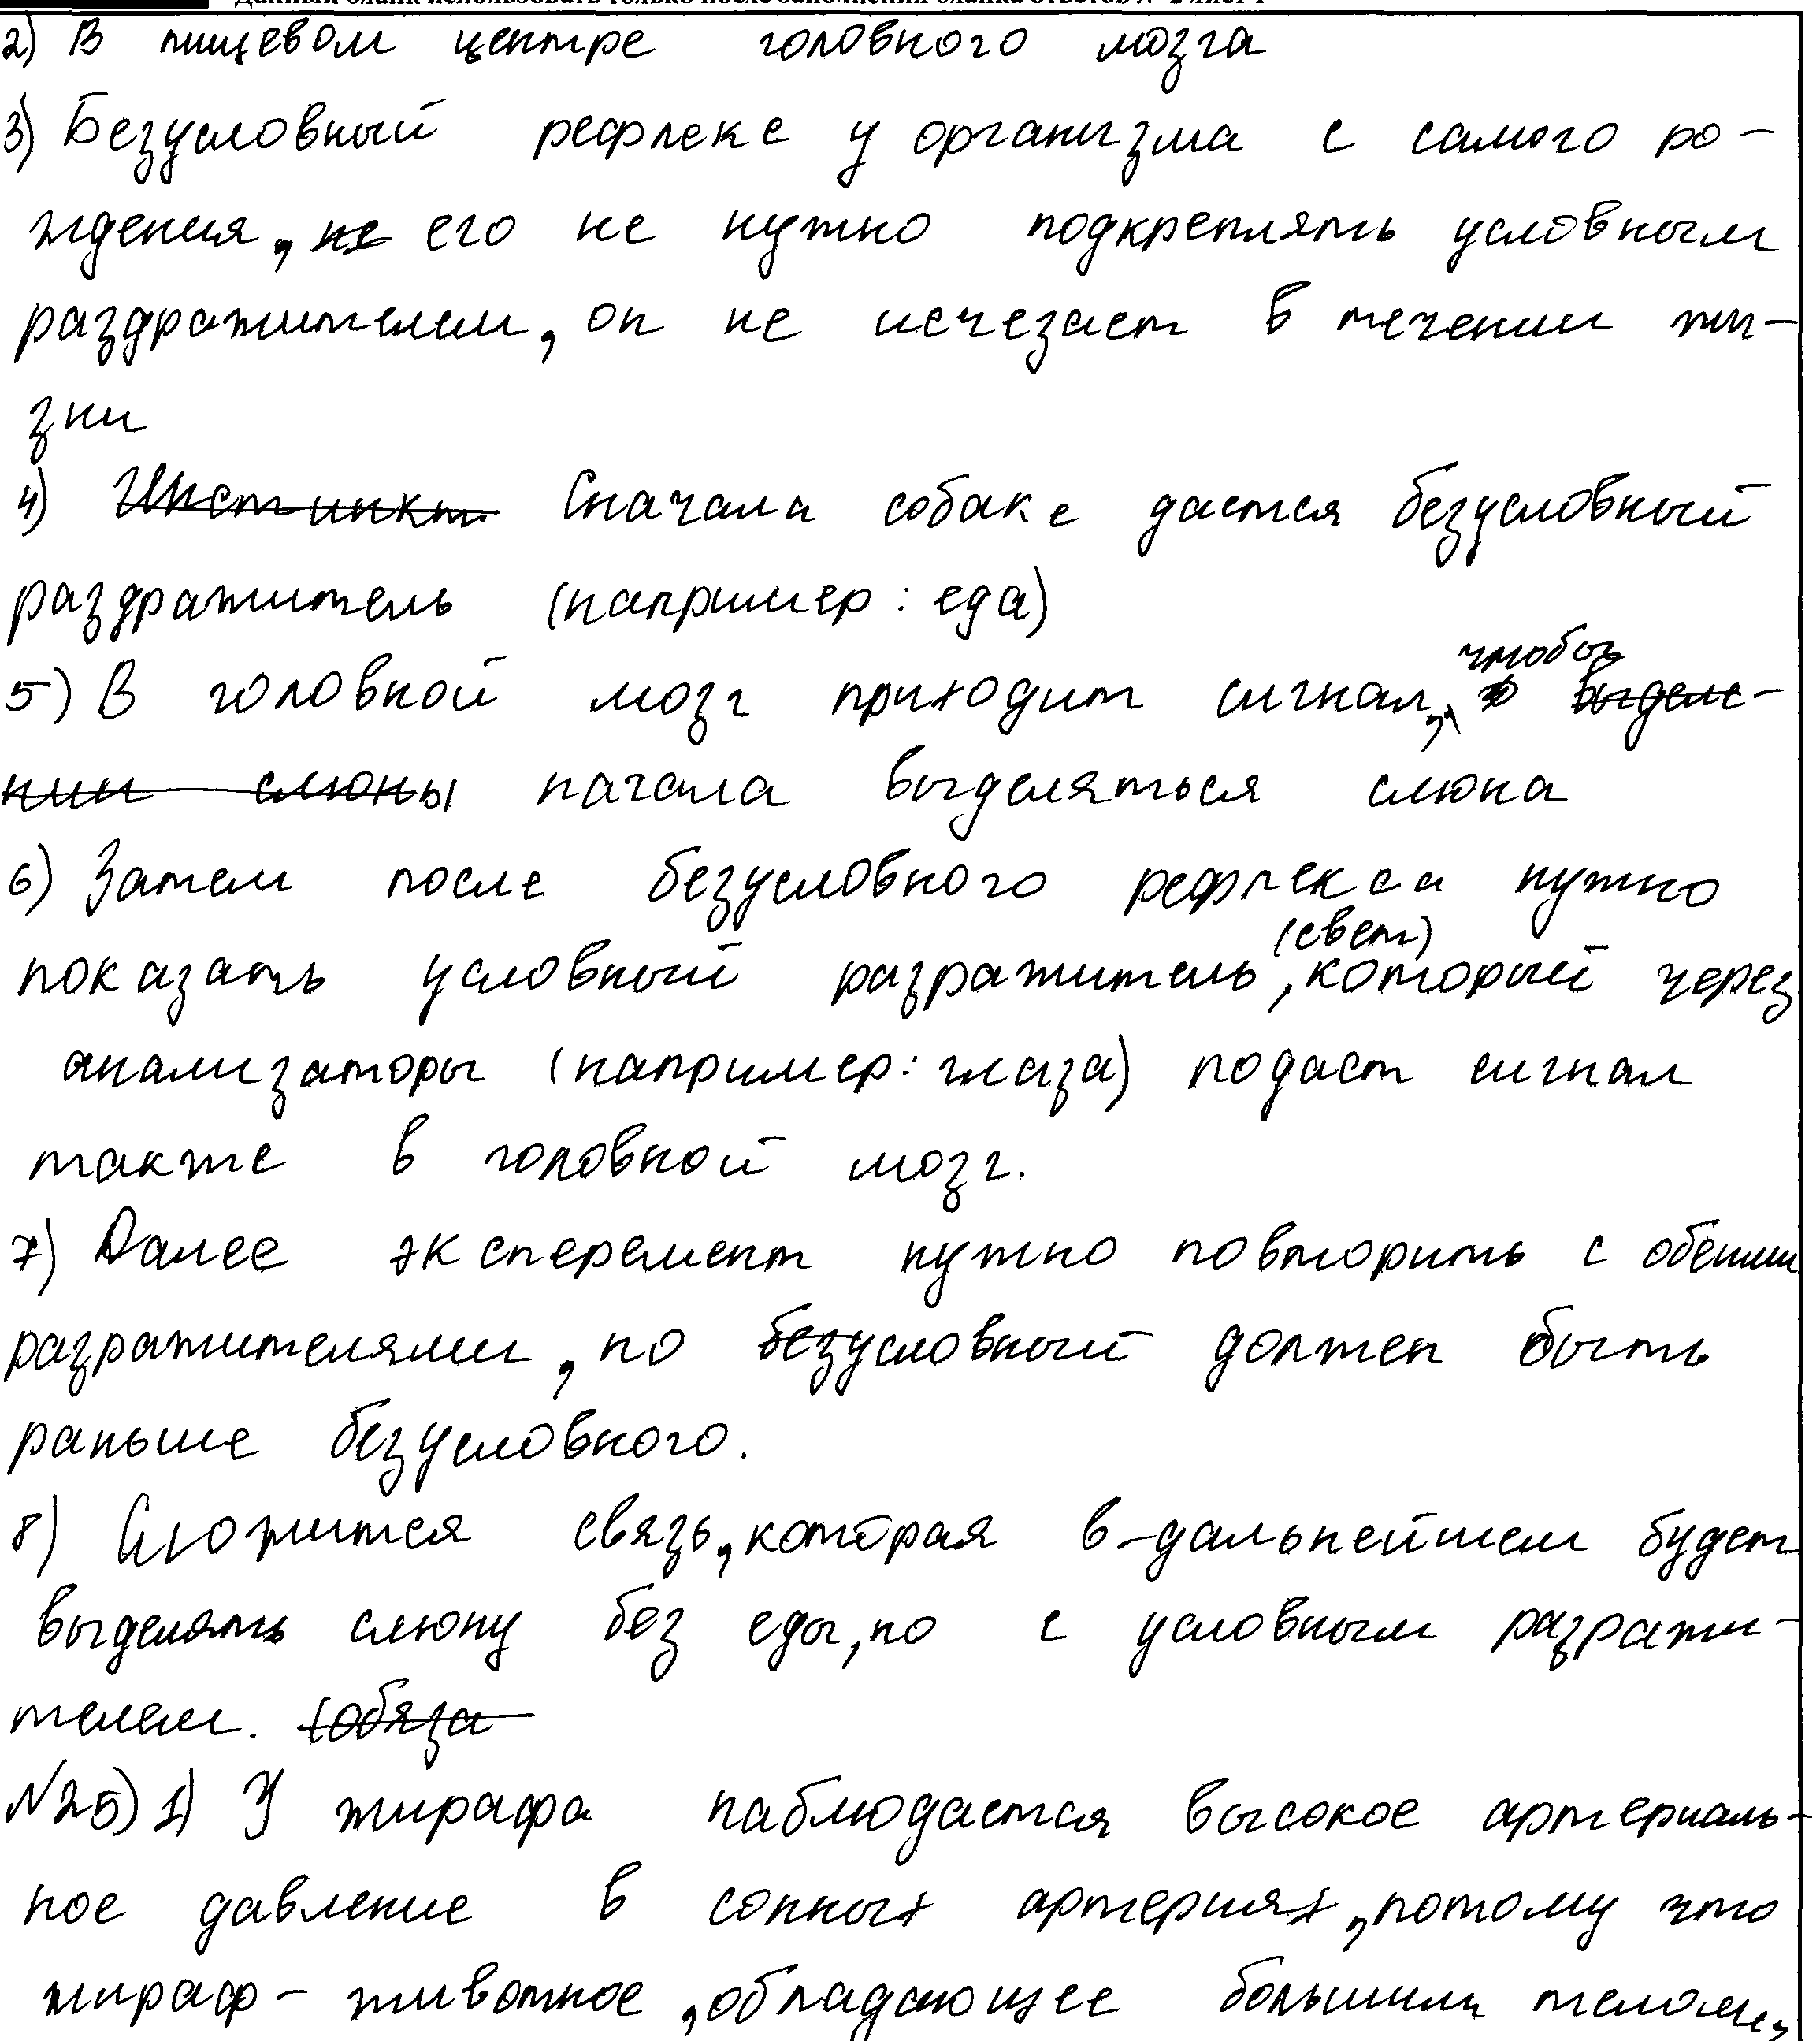 2) В пищевом центре головного мозга
3) Безусловный рефлекс у организма с самого ро-
ждения, не его не нужно подкреплять условным
раздражителем, он не исчезает в течении жи-
зни
4) Инстинкт Сначала собаке дается безусловный
раздражитель (например: еда)
5) В головной мозг приходит сигнал, чтобы о выделе-
нии слюны начала выделяться слюна
6) Затем после безусловного рефлекса нужно
показать условный разражитель (свет), который через
анализаторы (например: глаза) подаст сигнал
также в головной мозг.
7) Далее эксперемент нужно повторить с обеими
разражителями, но безусловный должен быть
раньше безусловного.
8) Сложится связь, которая в-дальнейшем будет
выделять слюну без еды, но с условным разражи-
телем. (обяза
№25) 1) У жирафа наблюдается высокое артериаль-
ное давление в сонных артериях, потому что
жираф - животное, обладающее большим телом,